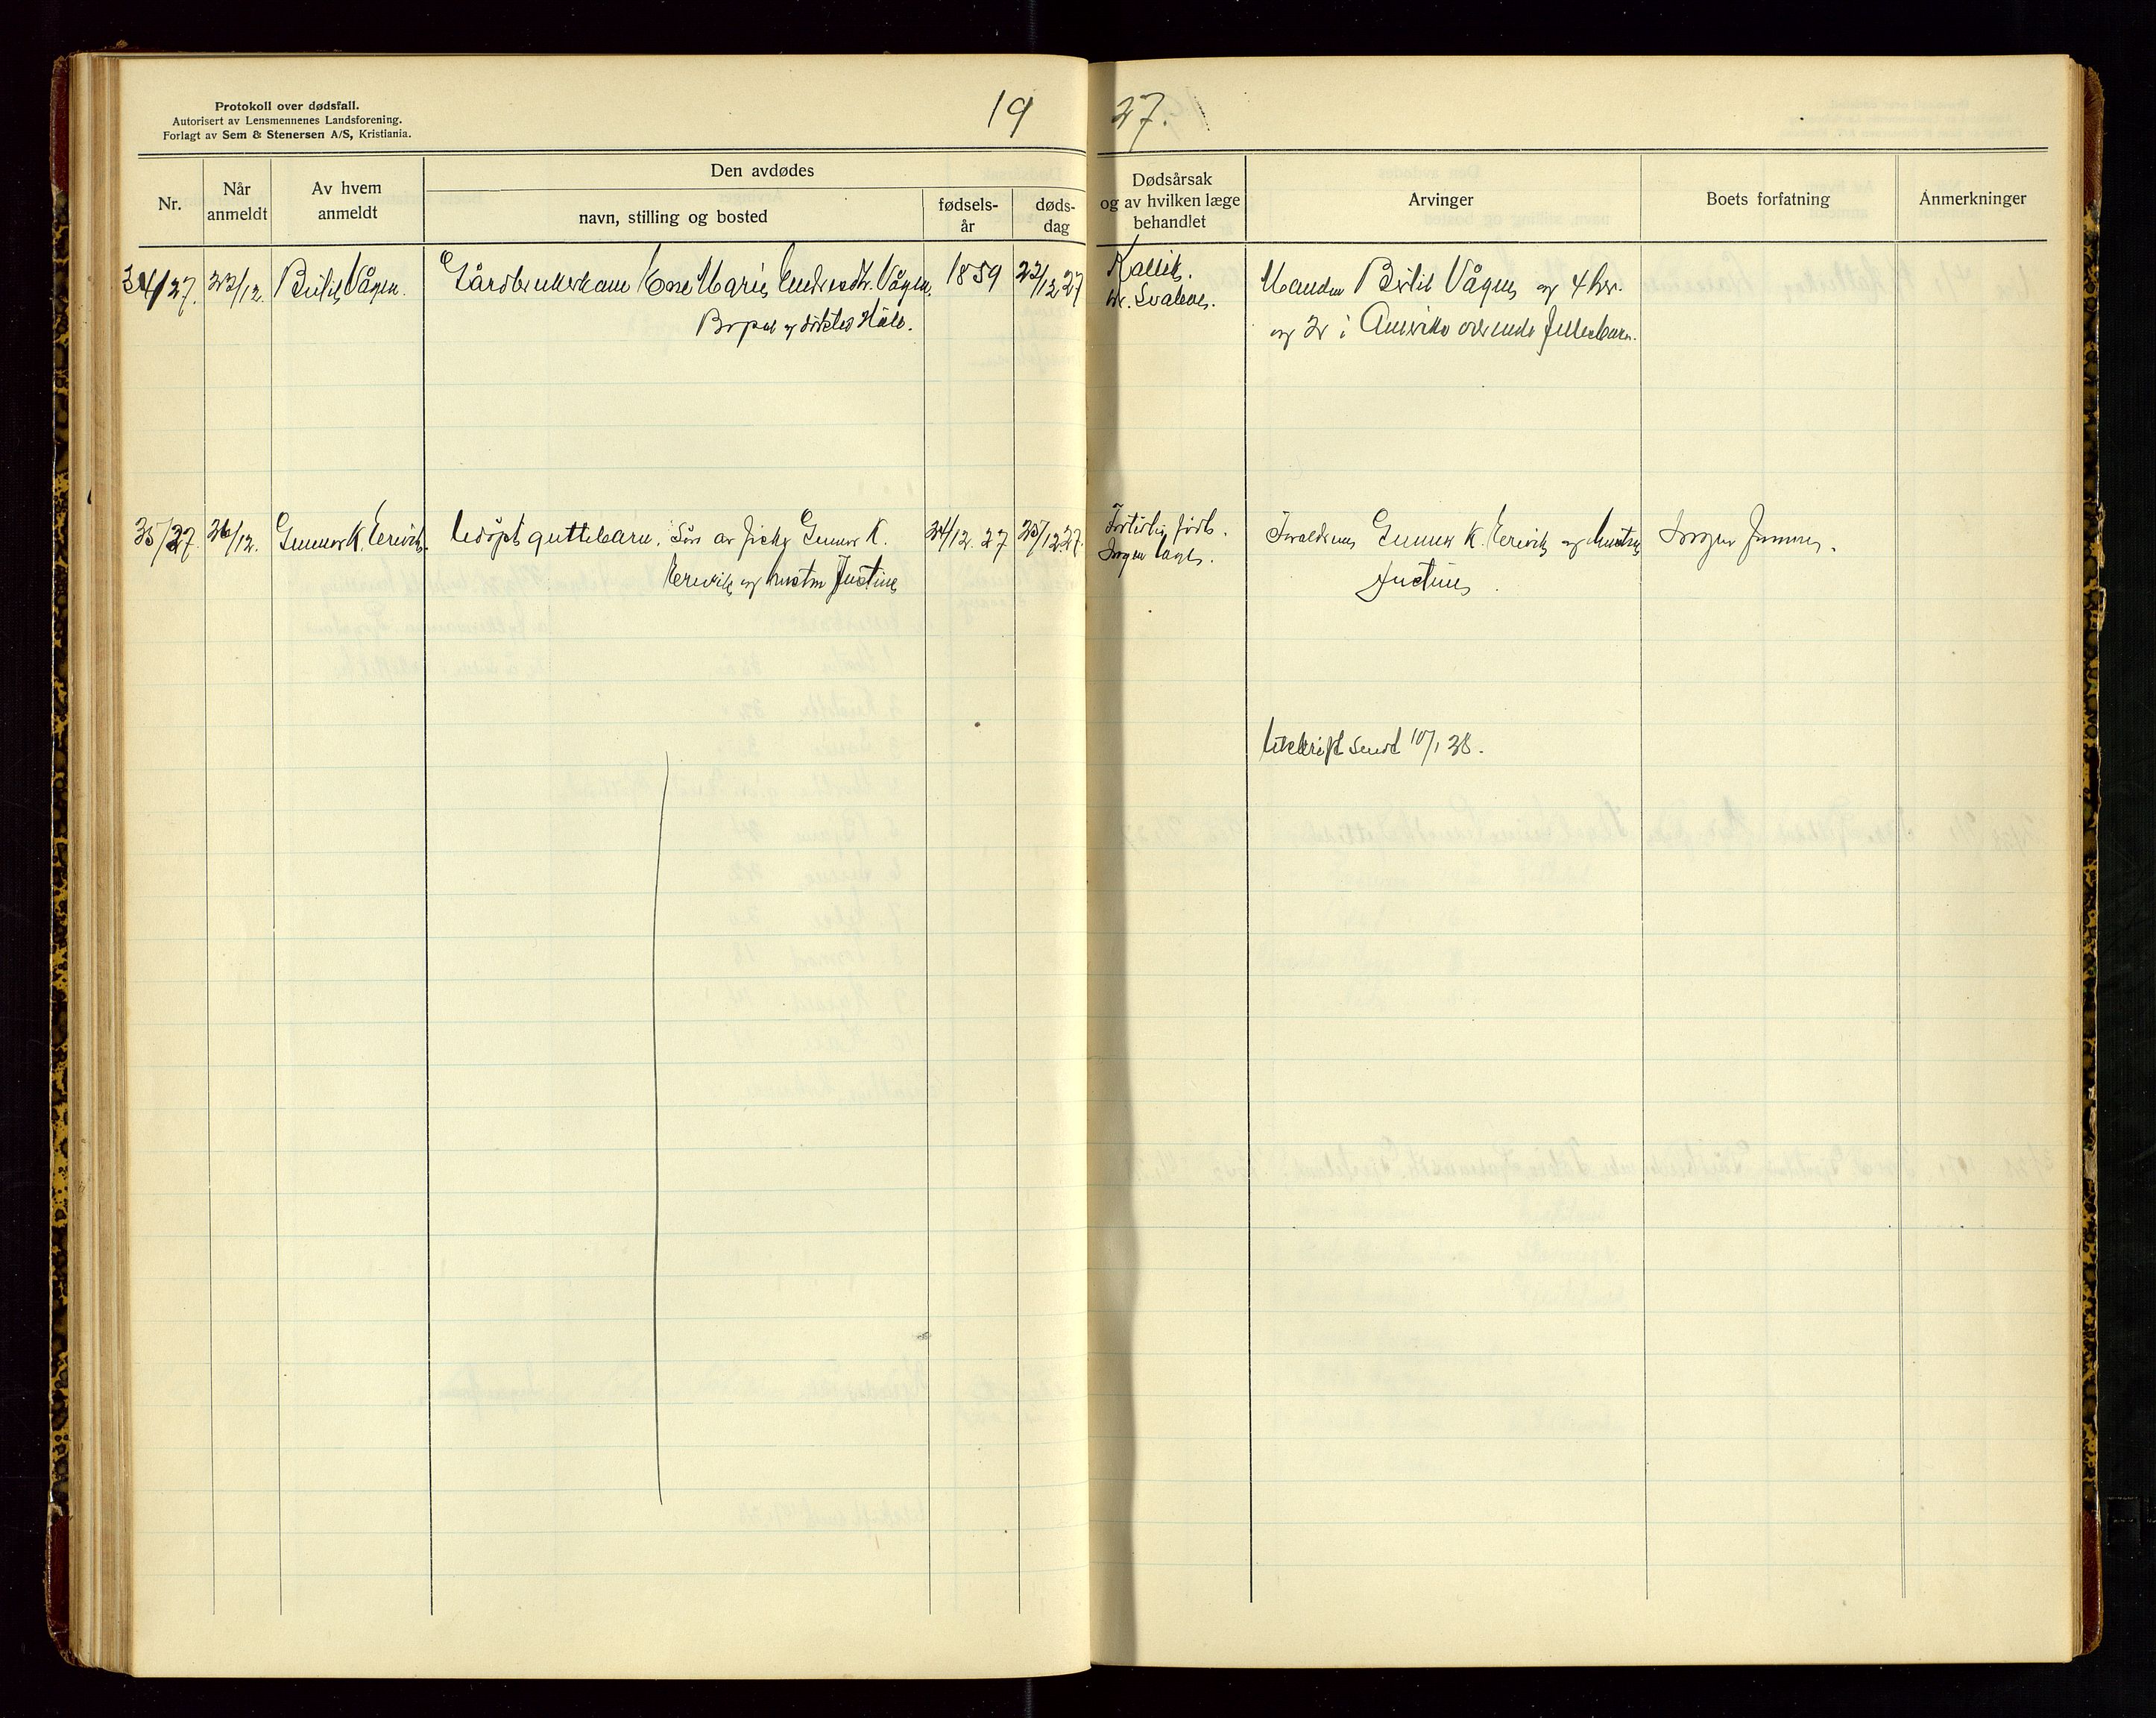 Protokoll over dødsfall.
Autorisert av Lensmennenes Landsforening.
Forlagt av Sem & Stenersen A/S, Kristiania.
19 27.
Nr.
Når anmeldt
Av hvem anmeldt
Den avdødes
navn, stilling og bosted
fødsels-år
døds-dag
Dødsårsak
og av hvilken læge
behandlet
Arvinger
Boets forfatning
Anmerkninger
34/27. 22/12. Bertil Vågen. Gårdbrukerkone Ene Marie Endresdtr. Vågen. 1859 22/12 27
Bopel og dödsted Höle.
Dr. Svaboe.
Manden Bertil Vågen og 4 her.
og 2 i Amerika overende fellesbarn.
35/27. 26/12. Gunnar K. Eirevik. Udöpt guttebarn. Sön av fisker Gunnar K. 24/12. 27 25/12 27.
Eirevik og hustru Justine
For tidlig födt.
Ingen læge.
Foreldrene Gunnar K. Eirevik og hustru
Justine
Ingen formue.
Utskrift sendt 10/1 28.